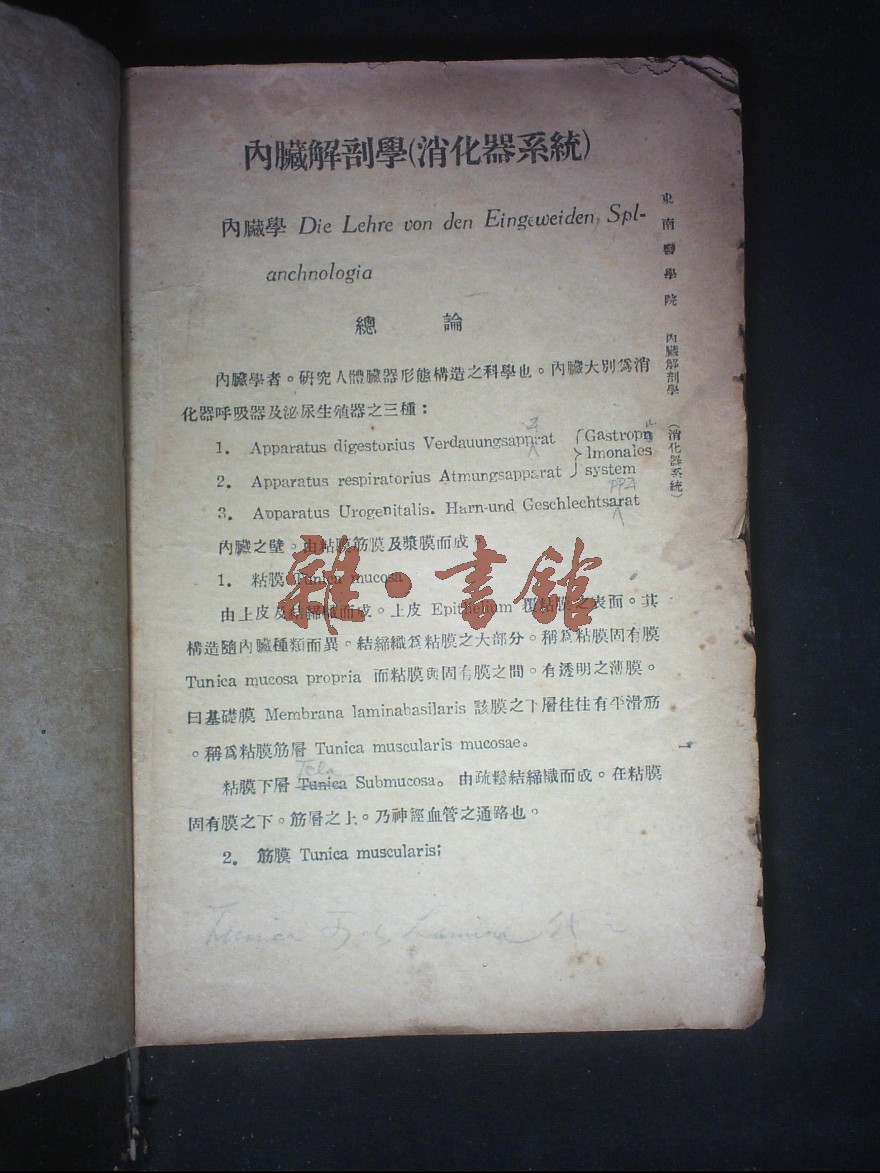 內臟解剖學(消化器系統)
內臟學 Die Lehre von den Eingeweiden, Spl-
anchnologia
總 論
內臟學者。研究人體臟器形態構造之科學也。內臟大別爲消
化器呼吸器及泌尿生殖器之三種：
1. Apparatus digestorius Verdauungsapprat
2. Apparatus respiratorius Atmungsapparat
Gastropn
lmonales
system
3. Apparatus Urogenitalis. Harn-und Geschlechtsarat
ppa
內臟之壁。由粘膜筋膜及漿膜而成。
1. 粘膜 Tunica mucosa
由上皮及結締織而成。上皮 Epithelium 覆粘膜之表面。其
構造隨內臟種類而異。結締織爲粘膜之大部分。稱爲粘膜固有膜
Tunica mucosa propria 而粘膜與固有膜之間。有透明之薄膜。
曰基礎膜 Membrana laminabasilaris 該膜之下層往往有平滑筋
。稱爲粘膜筋層 Tunica muscularis mucosae。
Tela
粘膜下層 Tunica Submucosa。由疏鬆結締織而成。在粘膜
固有膜之下。筋層之上。乃神經血管之通路也。
2. 筋膜 Tunica muscularis;
Tunica 可以 Lamina 代之
東南醫學院 內臟解剖學 (消化器系統)
雜·書館